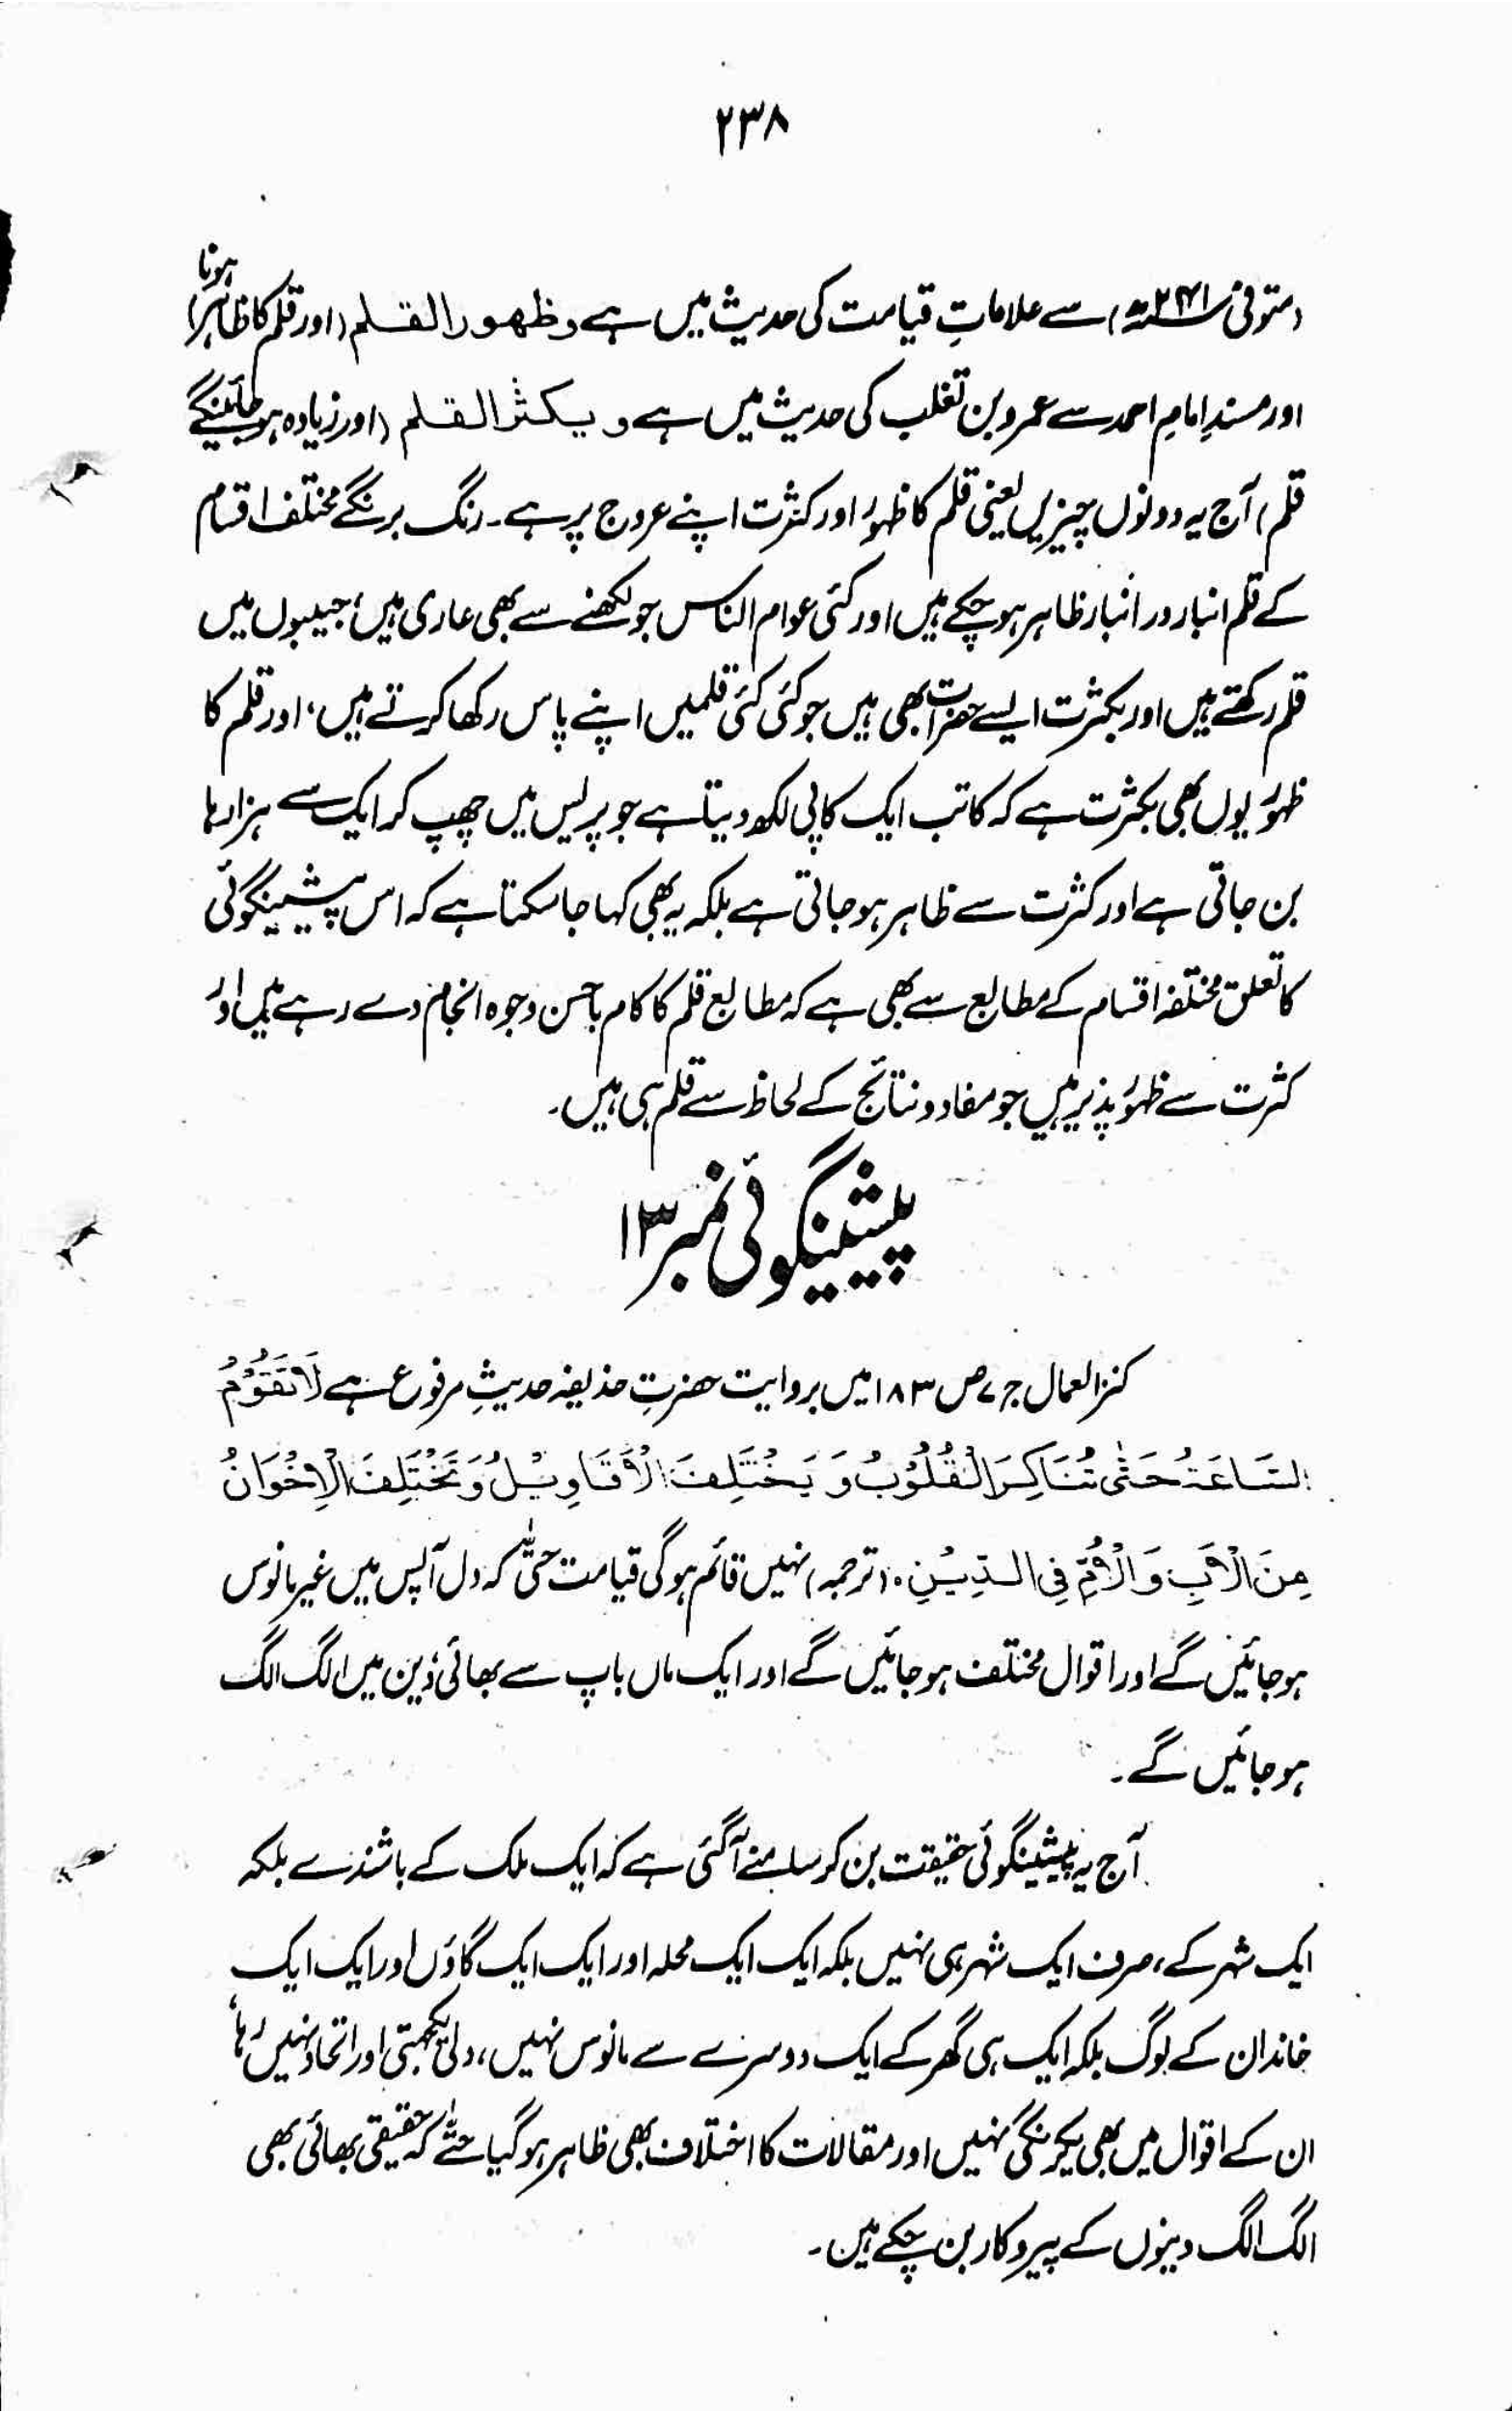 ۲۳۸
(متوفی ۲۴۱ھ) سے علاماتِ قیامت کی حدیث میں ہے وظہور القلم (اور قلم کا ظاہر ہونا)
اور مسندِ امامِ احمد سے عمرو بن تغلب کی حدیث میں ہے ویکثر القلم (اور زیادہ ہو جائینگے
قلم) آج یہ دونوں چیزیں یعنی قلم کا ظہور اور کثرت اپنے عروج پر ہے۔ رنگ برنگے مختلف اقسام
کے قلم انبار در انبار ظاہر ہو چکے ہیں اور کئی عوام الناس جو لکھنے سے بھی عاری ہیں، جیبوں میں
قلم رکھتے ہیں اور بکثرت ایسے حضرات بھی ہیں جو کئی کئی قلمیں اپنے پاس رکھا کرتے ہیں، اور قلم کا
ظہور یوں بھی بکثرت ہے کہ کاتب ایک کاپی لکھ دیتا ہے جو پریس میں چھپ کر ایک سے ہزار ہا
بن جاتی ہے اور کثرت سے ظاہر ہو جاتی ہے بلکہ یہ بھی کہا جا سکتا ہے کہ اس پیشینگوئی
کا تعلق مختلفہ اقسام کے مطابع سے بھی ہے کہ مطابع قلم کا کام باحسن وجوہ انجام دے رہے ہیں اور
کثرت سے ظہور پذیر ہیں جو مفاد و نتائج کے لحاظ سے قلم ہی ہیں۔
پیشینگوئی نمبر ۱۳
کنز العمال ج ۷ ص ۱۸۳ میں بروایت حضرتِ حذیفہ حدیثِ مرفوع ہے لَا تَقُوْمُ
السَّاعَةُ حَتّٰی تُنَاکِرَ الْقُلُوْبُ وَ یَخْتَلِفَ الْاَقَاوِیْلُ وَ تَخْتَلِفَ الْاِخْوَانُ
مِنَ الْاَبِ وَ الْاُمِّ فِی الدِّیْنِ۔ (ترجمہ) نہیں قائم ہو گی قیامت حتّٰی کہ دل آپس میں غیر مانوس
ہو جائیں گے اور اقوال مختلف ہو جائیں گے اور ایک ماں باپ سے بھائی دین میں الگ الگ
ہو جائیں گے۔
آج یہ پیشینگوئی حقیقت بن کر سامنے آ گئی ہے کہ ایک ملک کے باشندے بلکہ
ایک شہر کے، صرف ایک شہر ہی نہیں بلکہ ایک ایک محلہ اور ایک ایک گاؤں اور ایک ایک
خاندان کے لوگ بلکہ ایک ہی گھر کے ایک دوسرے سے مانوس نہیں، دلی یکجہتی اور اتحاد نہیں رہا،
ان کے اقوال میں بھی یکرنگی نہیں اور مقالات کا اختلاف بھی ظاہر ہو گیا حتّٰی کہ حقیقی بھائی بھی
الگ الگ دینوں کے پیروکار بن چکے ہیں۔